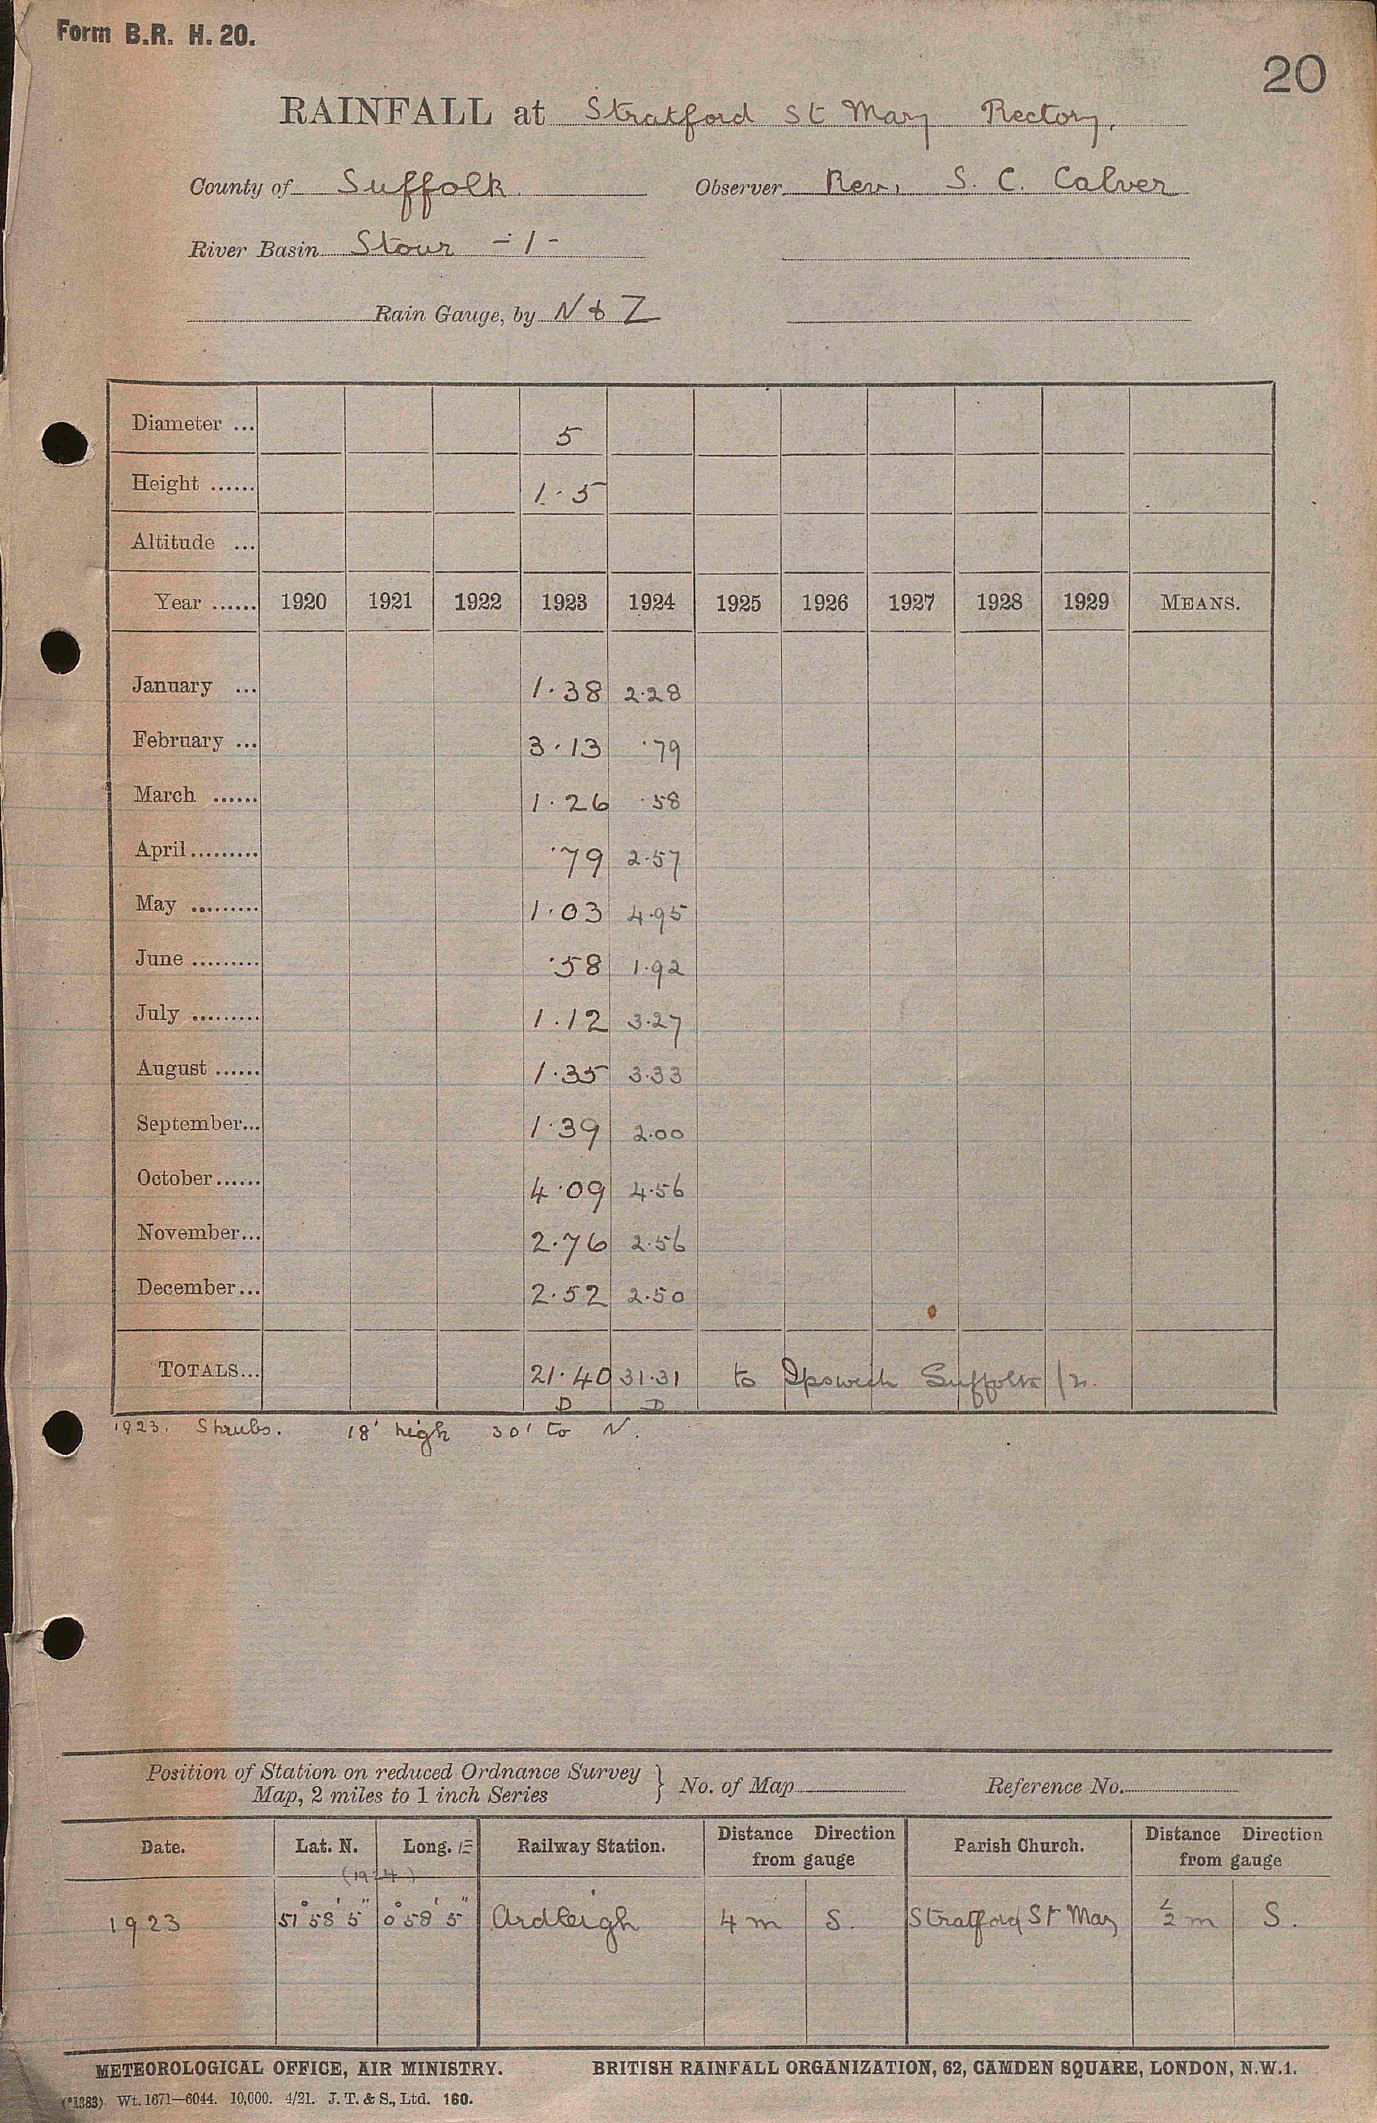 Form B.R. H. 20.
20
RAINFALL at Stratford St Mary Rectory.
County of Suffolk Observer Rev. S. C. Calver
River Basin Stour -1-
Rain Gauge, by N & Z
Diameter ... 5
Height ...... 1.5
Altitude ...
Year ...... 1920 1921 1922 1923 1924 1925 1926 1927 1928 1929 MEANS.
January ... 1.38 2.28
February ... 3.13 .79
March ...... 1.26 .58
April ......... .79 2.57
May ......... 1.03 4.95
June ......... .58 1.92
July ......... 1.12 3.27
August ...... 1.35 3.33
September... 1.39 2.00
October...... 4.09 4.56
November... 2.76 2.56
December... 2.52 2.50
TOTALS... 21.40 31.31 to Ipswich Suffolk
D D
1923. Shrubs. 18' high 30' to N.
Position of Station on reduced Ordnance Survey
Map, 2 miles to 1 inch Series } No. of Map Reference No.
Date. Lat. N. Long. E Railway Station. Distance Direction from gauge Parish Church. Distance Direction from gauge
(1924)
1923 51° 58' 5" 0° 58' 5" Ardleigh 4 m S. Stratford St Mary ½ m S.
METEOROLOGICAL OFFICE, AIR MINISTRY. BRITISH RAINFALL ORGANIZATION, 62, CAMDEN SQUARE, LONDON, N.W.1.
(*1383) Wt. 1671—6044. 10,000. 4/21. J. T. & S., Ltd. 160.